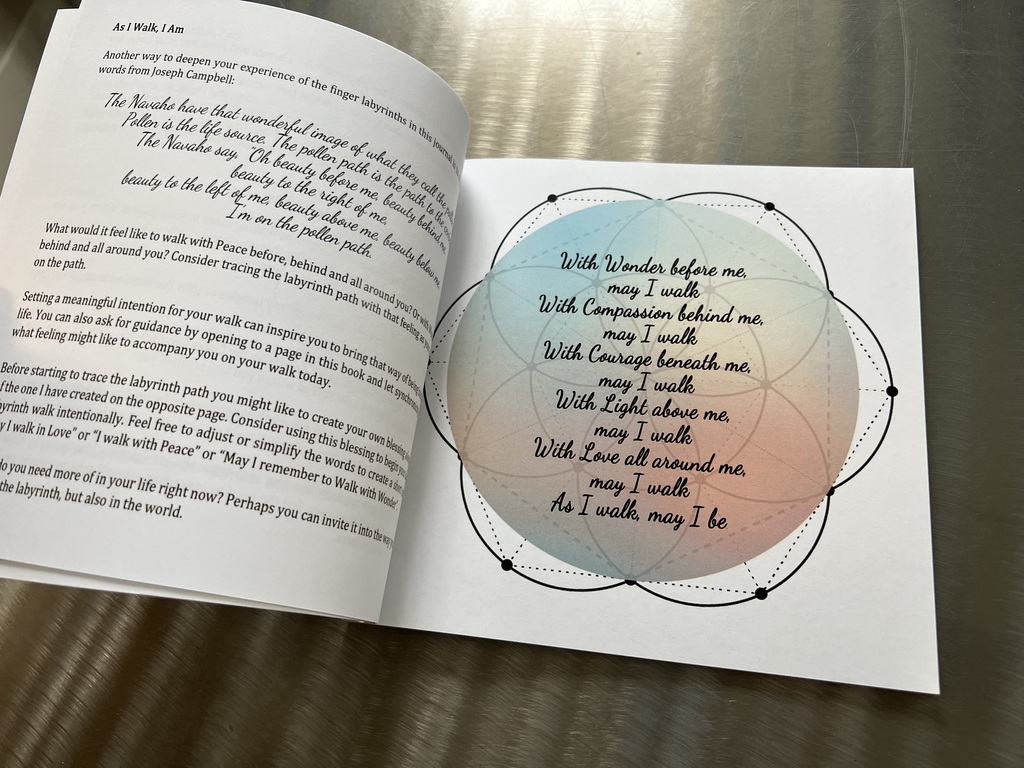 As I Walk, I Am
Another way to deepen your experience of the finger labyrinths in this journal
words from Joseph Campbell:
The Navaho have that wonderful image of what they call the
Pollen is the life source. The pollen path is the path to the
The Navaho say, 'Oh beauty before me, beauty behind me,
beauty to the right of me,
beauty to the left of me, beauty above me, beauty below me,
I'm on the pollen path.
What would it feel like to walk with Peace before, behind and all around you? Or with
behind and all around you? Consider tracing the labyrinth path with that feeling as
on the path.
Setting a meaningful intention for your walk can inspire you to bring that way of being
life. You can also ask for guidance by opening to a page in this book and let
what feeling might like to accompany you on your walk today.
Before starting to trace the labyrinth path you might like to create your own blessing
the one I have created on the opposite page. Consider using this blessing to begin
walk intentionally. Feel free to adjust or simplify the words to create a
I walk in Love" or "I walk with Peace" or "May I remember to Walk with Wonder"
do you need more of in your life right now? Perhaps you can invite it into the way
the labyrinth, but also in the world.
With Wonder before me,
may I walk
With Compassion behind me,
may I walk
With Courage beneath me,
may I walk
With Light above me,
may I walk
With Love all around me,
may I walk
As I walk, may I be